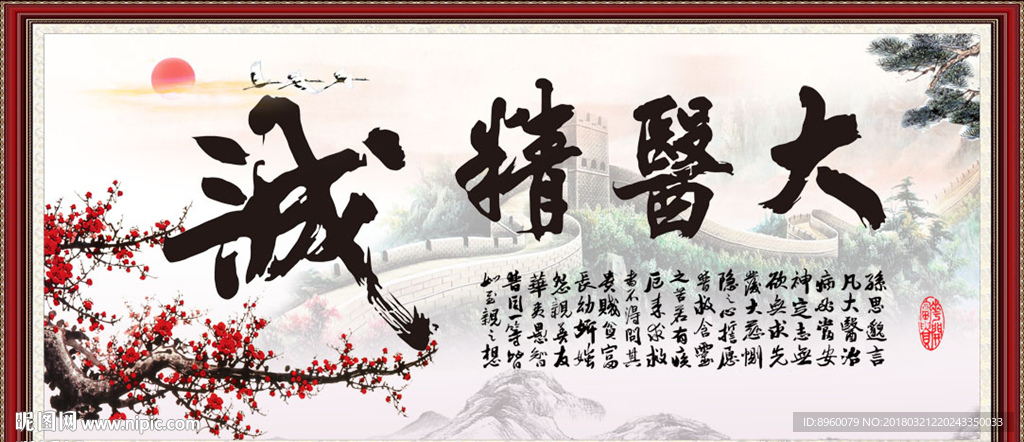 大醫精誠
孫思邈言
凡大醫治
病必當安
神定志無
欲無求先
發大慈惻
隱之心誓愿
普救含靈
之苦若有疾
厄來求救
者不得問其
貴賤貧富
長幼妍媸
怨親善友
華夷愚智
普同一等皆
如至親之想
昵图网 www.nipic.com
ID:8960079 NO:20180321220243350033